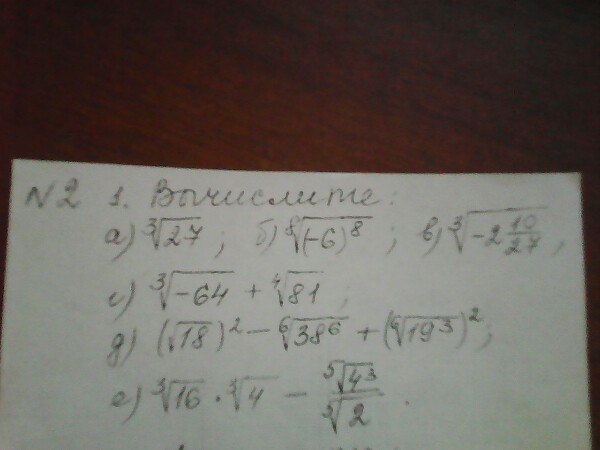 N2 1. Вычислите:
а) ∛27; б) ⁸√(-6)⁸; в) ∛-2 10/27,
с) ∛-64 + ⁴√81;
д) (√18)² - ⁶√38⁶ + (⁶√19³)²;
е) ∛16 · ∛4 - ⁵√4³/⁵√2.